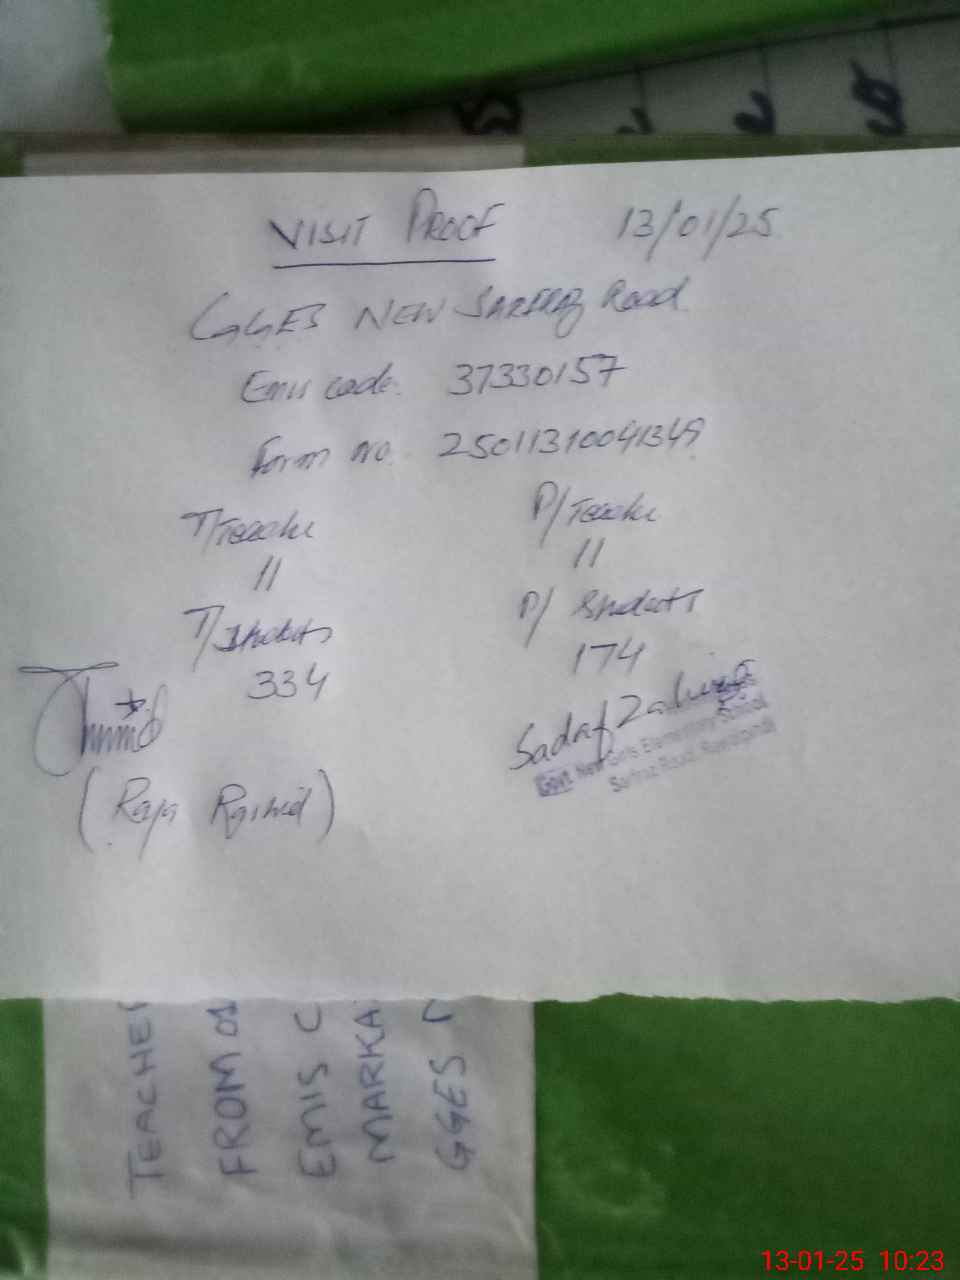 VISIT PROOF 13/01/25
GGES NEW SARFRAZ Road
Emis code. 37330157
Form no. 25011310041349
T/Teache P/Teache
11 11
T/Students P/Students
334 174
Sadaf Zahira
Govt. New Girls Elementary School
Sarfraz Road, Rawalpindi
(Raja Rashid)
TEACHER
FROM 01
EMIS C
MARKA
GGES N
13-01-25 10:23